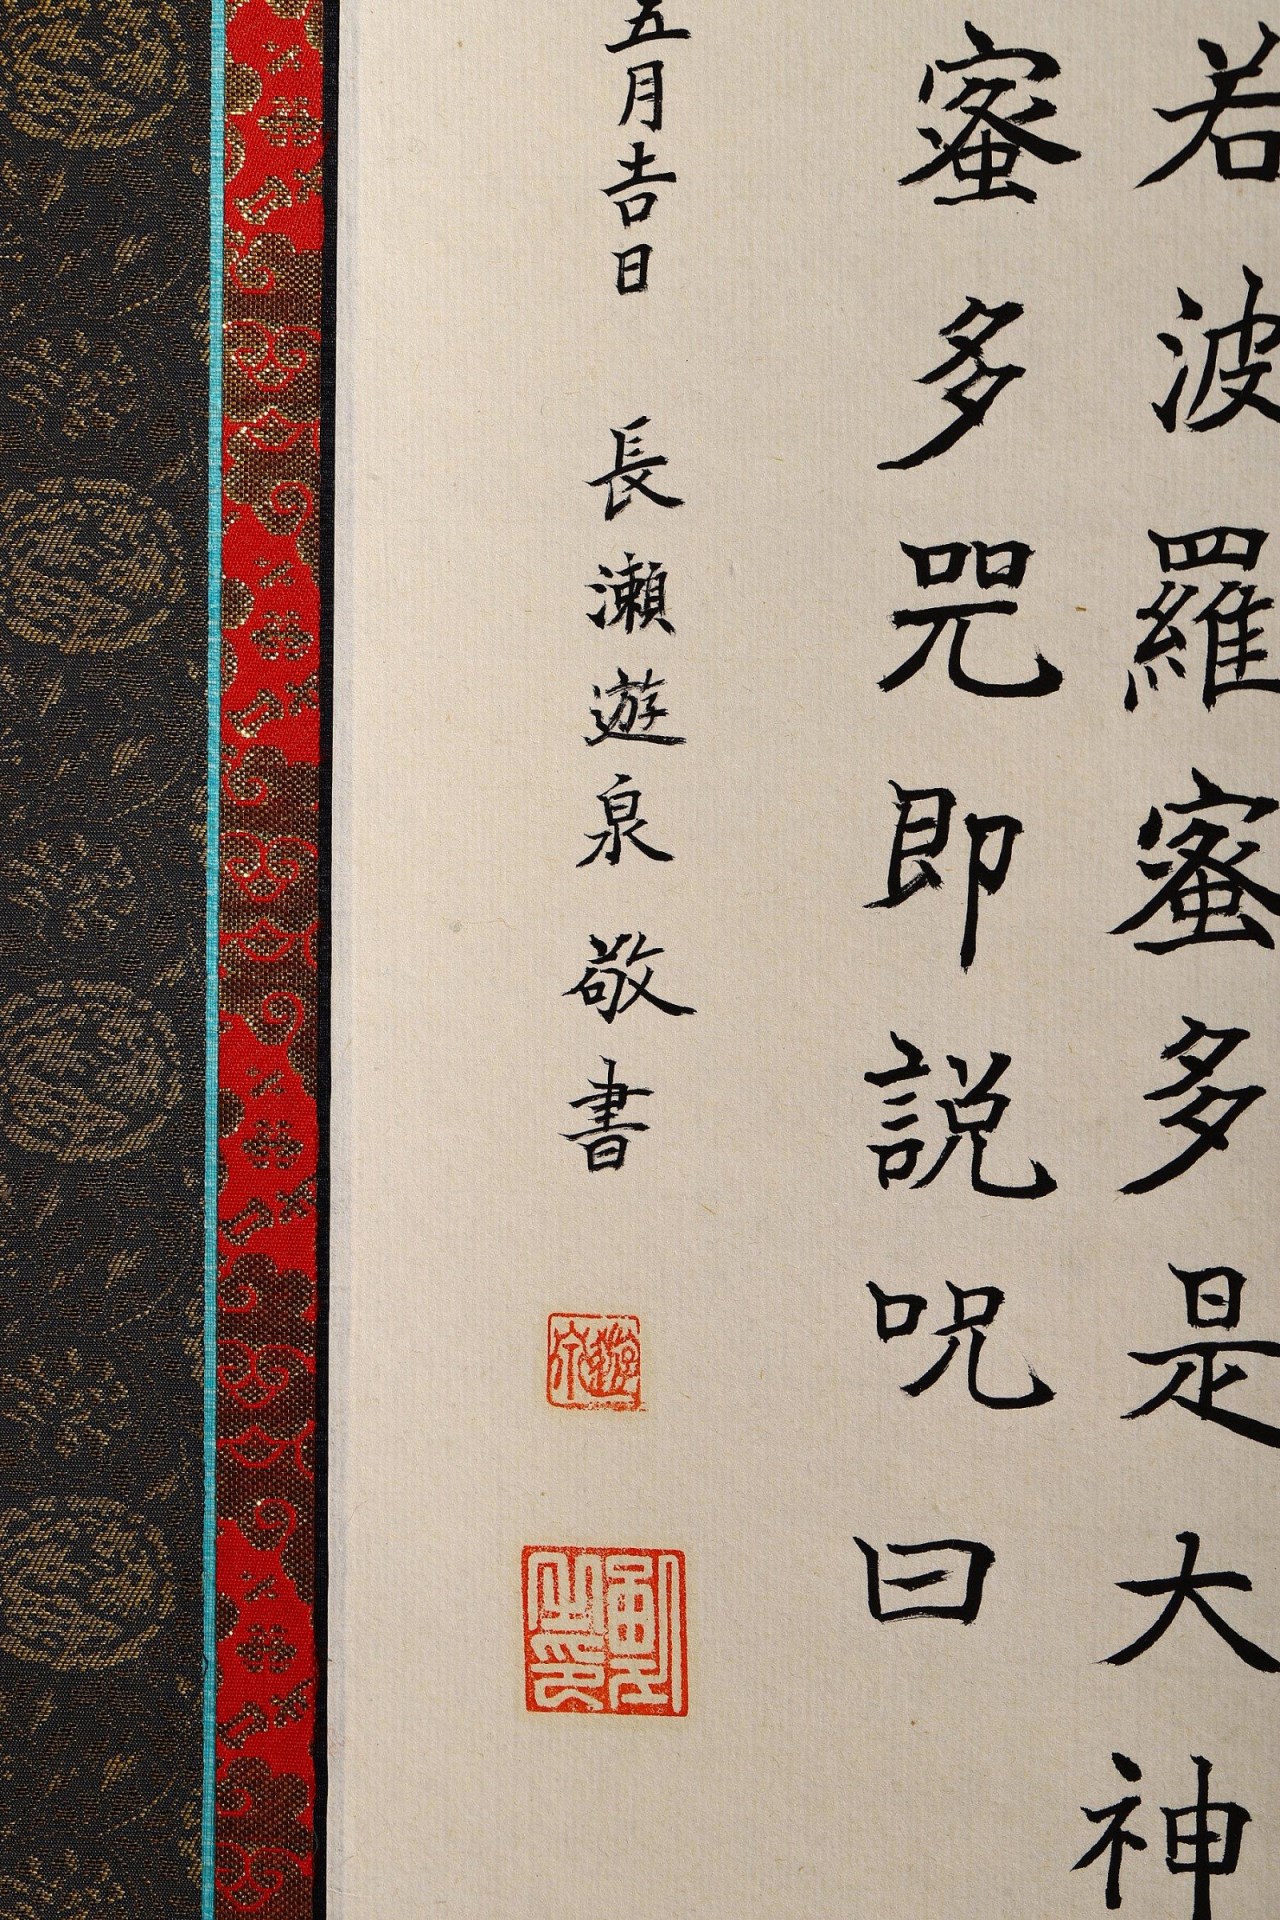 若波羅蜜多是大神
蜜多咒即説呪曰
五月吉日 長瀬遊泉敬書
遊泉